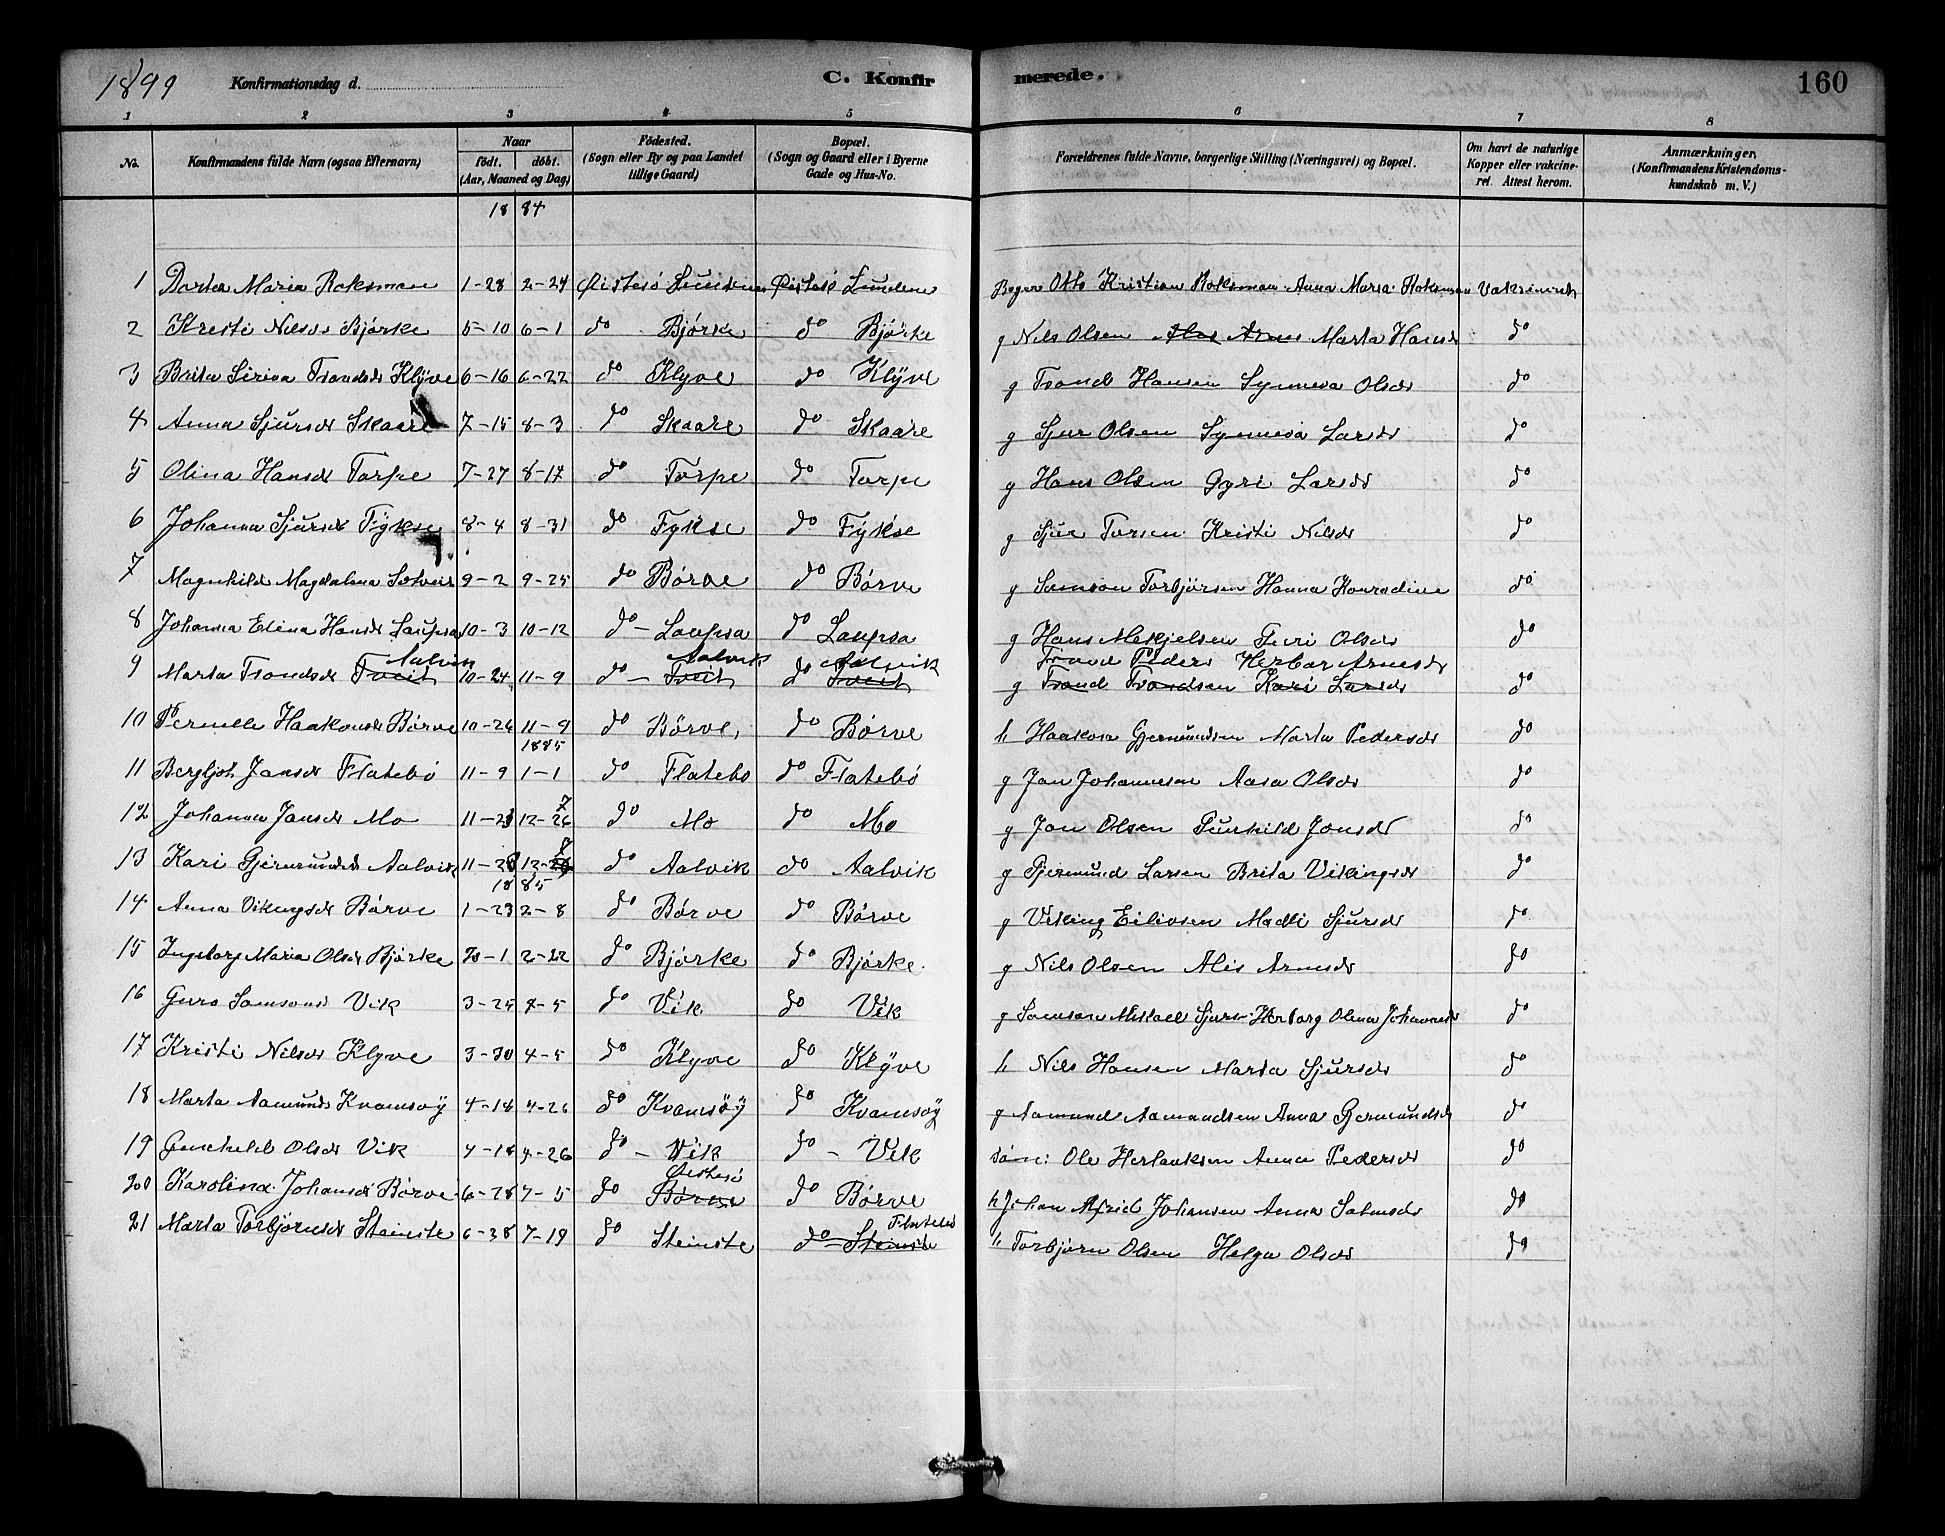 1899 Konfirmationsdag d. C. Konfirmerede. 160
1 2 3 4 5 6 7 8
No. Konfirmandens fulde Navn (ogsaa Efternavn) Naar födt. döbt. (Aar, Maaned og Dag) Födested. (Sogn eller By og paa Landet tillige Gaard) Bopæl. (Sogn og Gaard eller i Byerne Gade og Hus-No. Forældrenes fulde Navne, borgerlige Stilling (Næringsvei) og Bopæl. Om havt de naturlige Kopper eller vakcineret. Attest herom. Anmærkninger. (Konfirmandens Kristendomskundskab m. V.)
18 84
1 Dorta Maria Roksman 1-28 2-24 Øistesö Lundene Øistesö Lundene Otto Kristian Roksman Anna Maria Roksman
2 Kristi Nilsdr Björke 5-10 6-1 do Björke do Björke g Nils Olsen Marta Hansdr do
3 Brita Sirina Trondsdr Klÿve 6-16 6-22 do Klyve do Klÿve g Trond Hansen Synneva Olsdr do
4 Anna Sjursdr Skaare 7-15 8-3 do Skaare do Skaare g Sjur Olsen Synneva Larsdr do
5 Olina Hansdr Torpe 7-27 8-17 do Torpe do Torpe g Hans Olsen Gyri Larsdr do
6 Johanna Sjursdr Fykse 8-4 8-31 do Fykse do Fÿkse g Sjur Torsen Kristi Nilsdr do
7 Magnhild Magdalena 9-2 9-25 do Börve do Börve g Samson Torbjörsen Hanna Konradine do
8 Johanna Elina Hansdr Laupsa 10-3 10-12 do - Laupsa do Laupsa g Hans Mekjelsen Guri Olsdr do
Aalvik Aalvik Aalvik Trond Peders Herbor Arnesdr
9 Marta Trondsdr Tveit 10-24 11-9 do - Tveit do Tveit g Trond Trondsen Kari Larsdr do
10 Pernille Haakonsdr Börve 10-26 11-9 do Börve, do Börve h Haakon Gjermundsen Marta Pedersdr do
1885
11 Bergljot Jansdr Flatebö 11-9 1-1 do Flatebo do Flatebö g Jan Johannesen Aasa Olsdr do
7
12 Johanna Jansdr Mo 11-23 12-26 do Mo do Mo g Jon Olsen Gunhild Jonsdr do
13 Kari Gjermundsdr Aalvik 11-28 12- do Aalvik do Aalvik g Gjermund Larsen Brita Vikingsdr do
18 85
14 Anna Vikingsdr Börve 1-23 2-8 do Börve do Börve g Viking Eilivsen Madli Sjursdr do
15 Ingeborg Maria Olsdr Björke 2-22 do Björke do Björke. g Nils Olsen Alis Arnesdr do
16 Guro Samsonsd Vik 3-25 4-5 do Vik do Vik g Samson Mikael Sjurs. Herborg Olina Johannesdr do
17 Kristi Nilsdr Klyve 3-30 4-5 do Klyve do Klÿve h Nils Hansen Marta Sjursdr do
18 Marta Aamundsdr Kvamsöy 4-18 4-26 do Kvamsöÿ do Kvamsöÿ g Aamund Aamundsen Anna Gjermundsdr do
19 Gunhild Olsdr Vik 4-18 4-26 do - Vik do - Vik Ole Herlaugsen Anna Pedersdr do
Östesö
20 Karolina Johansdr Börve 6-28 7-5 do Börve do Börve h Johan Alfrid Johansen Anna Salmsdr do
Flatebö
21 Marta Torbjörnsdr Steinstö 6-28 7-19 do Steinstö do Steinstö h Torbjörn Olsen Helga Olsdr do